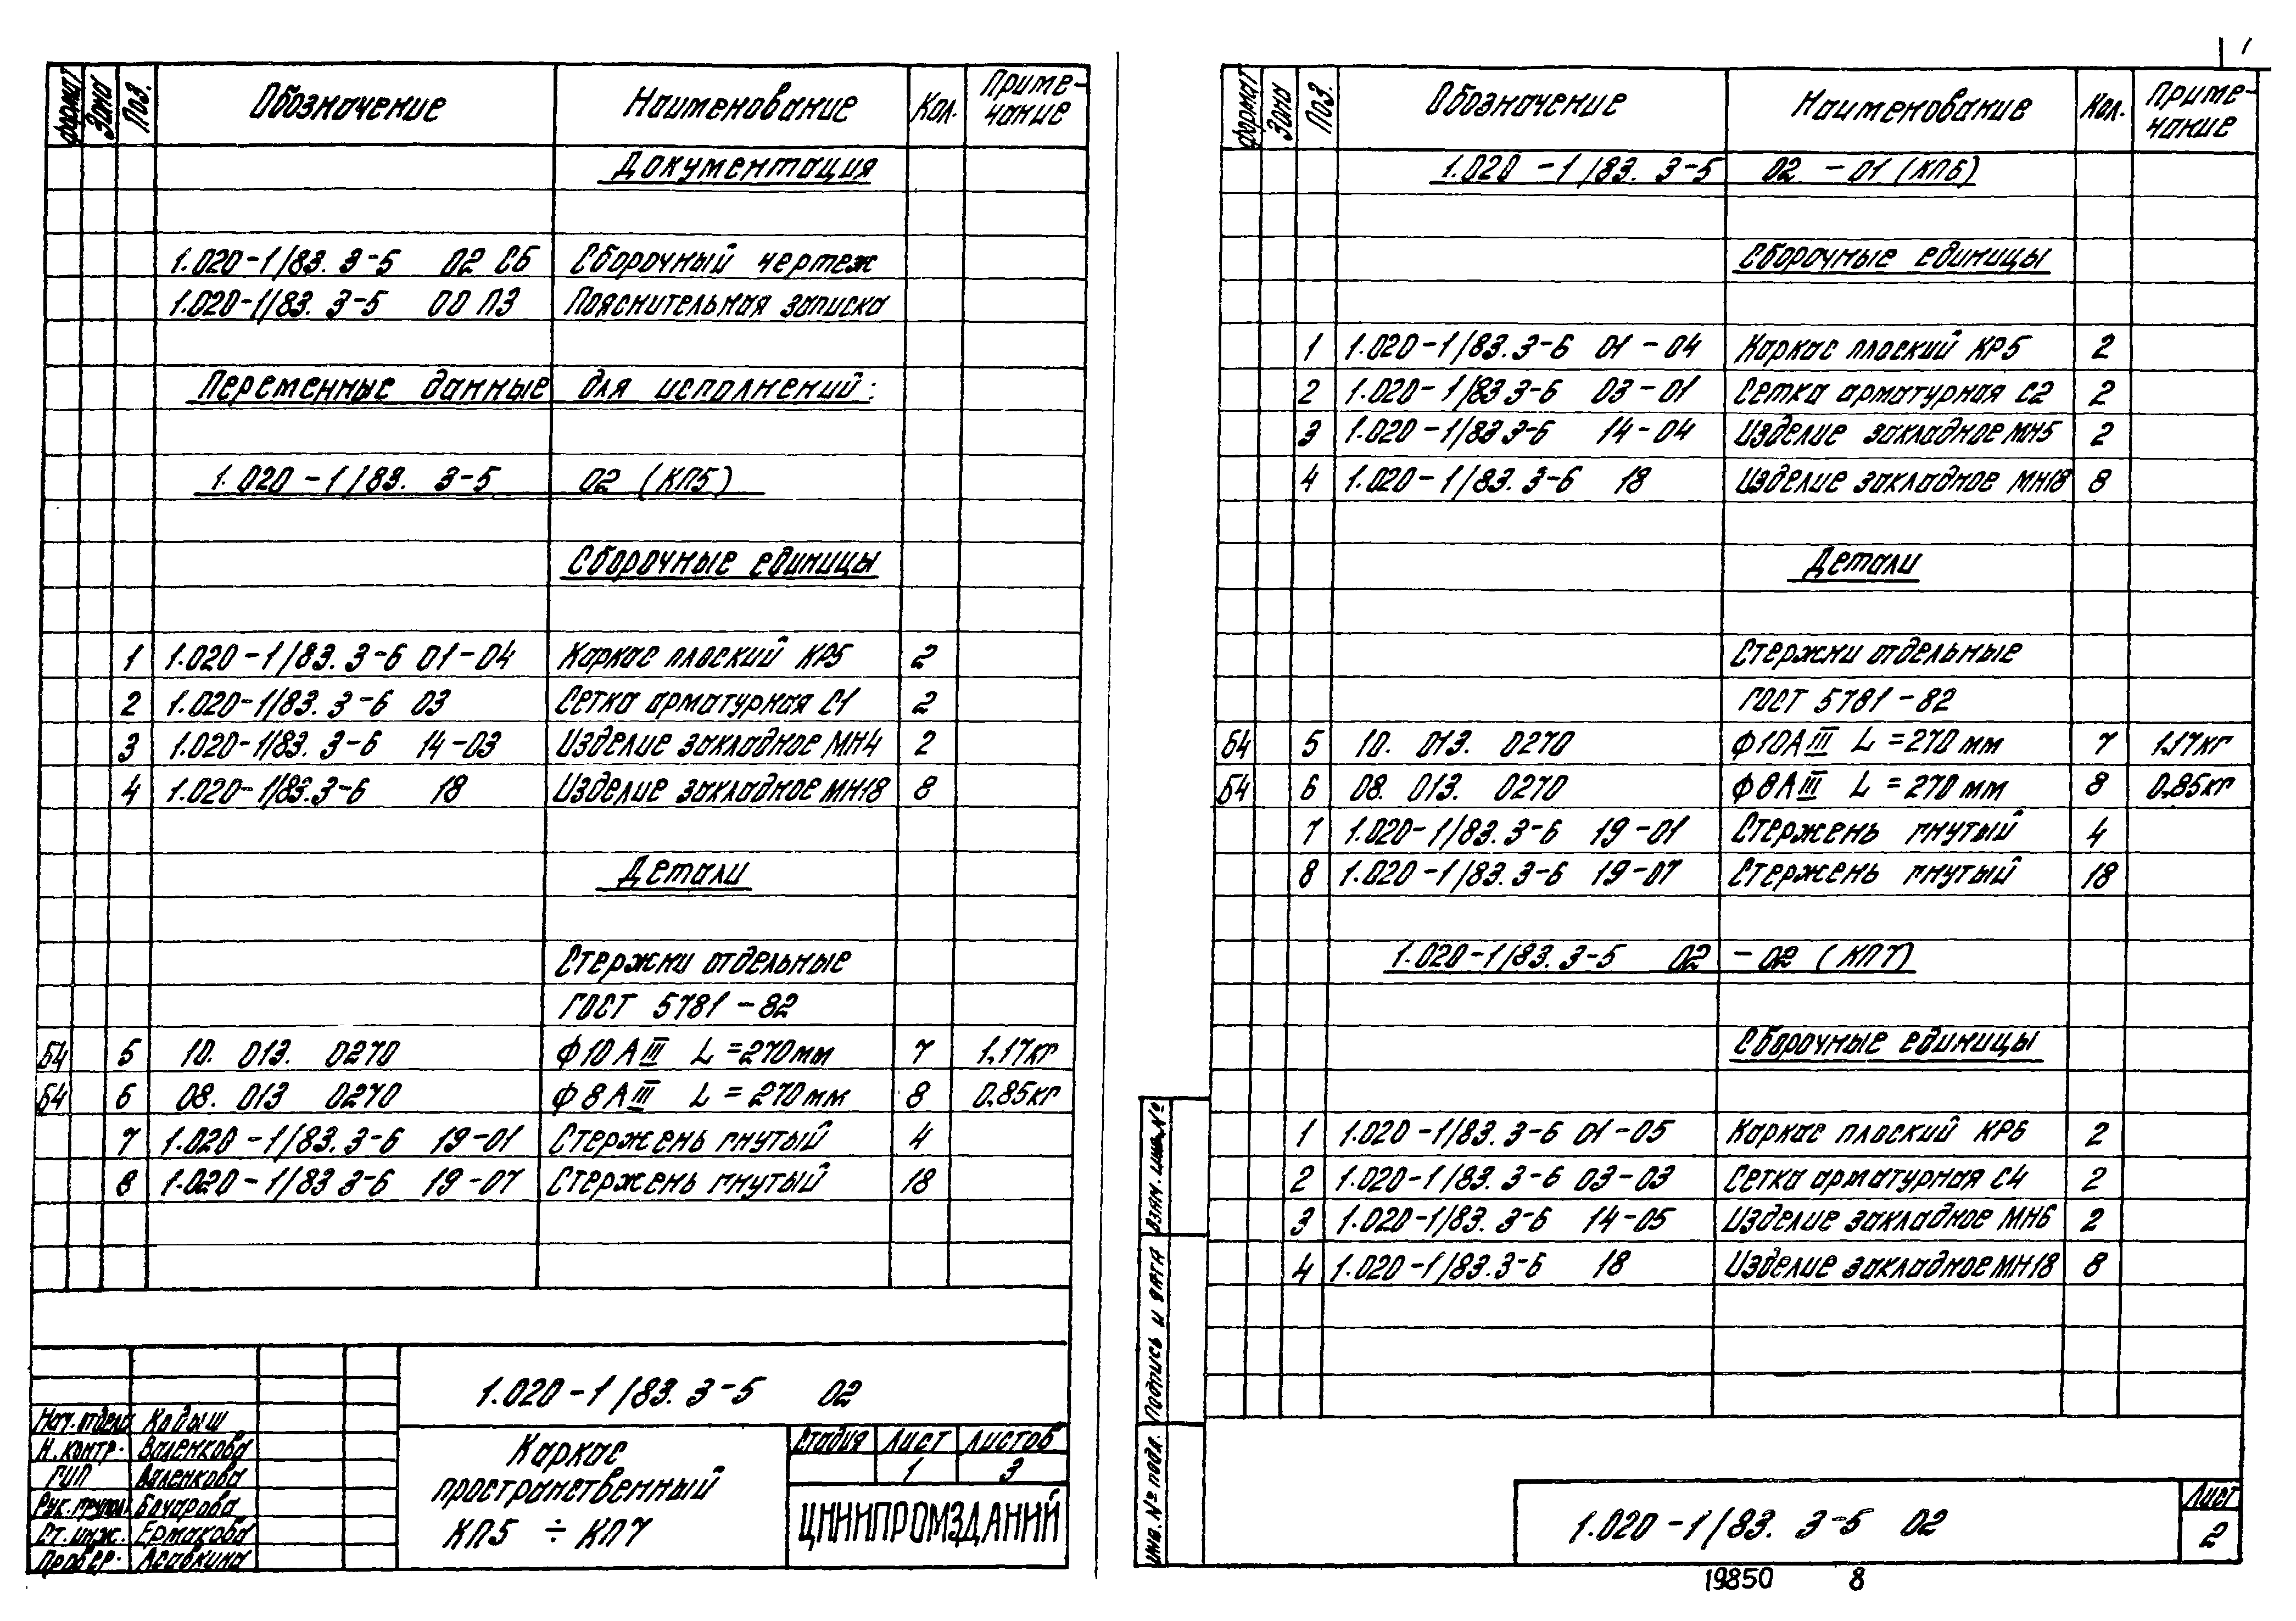 Формат Зона Поз. Обозначение Наименование Кол. Примечание
Документация
1.020-1/83. 3-5 02 СБ Сборочный чертеж
1.020-1/83. 3-5 00 ПЗ Пояснительная записка
Переменные данные для исполнений:
1.020-1/83. 3-5 02 (КП5)
Сборочные единицы
1 1.020-1/83. 3-6 01-04 Каркас плоский КР5 2
2 1.020-1/83. 3-6 03 Сетка арматурная С1 2
3 1.020-1/83. 3-6 14-03 Изделие закладное МН4 2
4 1.020-1/83. 3-6 18 Изделие закладное МН18 8
Детали
Стержни отдельные
ГОСТ 5781-82
БЧ 5 10. 013. 0270 Ф10АIII L=270мм 7 1,17кг
БЧ 6 08. 013 0270 Ф8АIII L=270мм 8 0,85кг
7 1.020-1/83. 3-6 19-01 Стержень гнутый 4
8 1.020-1/83 3-6 19-07 Стержень гнутый 18
1.020-1/83. 3-5 02
Нач. отдела Кодыш
Н. контр. Валенкова
ГИП Валенкова
Рук. группы Бочарова
Ст. инж. Ермакова
Провер. Асавкина
Каркас
пространственный
КП5 ÷ КП7
Стадия Лист Листов
1 3
ЦНИИПРОМЗДАНИЙ
1
Формат Зона Поз. Обозначение Наименование Кол. Примечание
1.020-1/83. 3-5 02-01 (КП6)
Сборочные единицы
1 1.020-1/83. 3-6 01-04 Каркас плоский КР5 2
2 1.020-1/83 3-6 03-01 Сетка арматурная С2 2
3 1.020-1/83 3-6 14-04 Изделие закладное МН5 2
4 1.020-1/83. 3-6 18 Изделие закладное МН18 8
Детали
Стержни отдельные
ГОСТ 5781-82
БЧ 5 10. 013. 0270 Ф10АIII L=270мм 7 1,17кг
БЧ 6 08. 013. 0270 Ф8АIII L=270мм 8 0,85кг
7 1.020-1/83. 3-6 19-01 Стержень гнутый 4
8 1.020-1/83. 3-6 19-07 Стержень гнутый 18
1.020-1/83. 3-5 02-02 (КП7)
Сборочные единицы
1 1.020-1/83. 3-6 01-05 Каркас плоский КР6 2
2 1.020-1/83. 3-6 03-03 Сетка арматурная С4 2
3 1.020-1/83. 3-6 14-05 Изделие закладное МН6 2
4 1.020-1/83. 3-6 18 Изделие закладное МН18 8
Взам. инв. №
Подпись и дата
Инв. № подл.
1.020-1/83. 3-5 02
Лист
2
19850 8